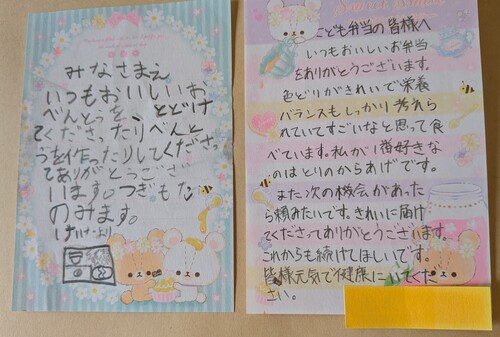 みなさまえ
いつもおいしいお
べんとうを とどけ
てくださったりべんと
うを作ったりしてくださっ
てありがとうござ
います。つぎもた
のみます。
こども弁当の皆様へ
いつもおいしいお弁当
をありがとうございます。
色どりがきれいで栄養
バランスもしっかり考えら
れていてすごいなと思って食
べています。私が1番好きな
のはとりのからあげです。
また次の機会があった
ら頼みたいです。きれいに届け
てくださってありがとうございます。
これからも続けてほしいです。
皆様元気で健康にいてくだ
さい。